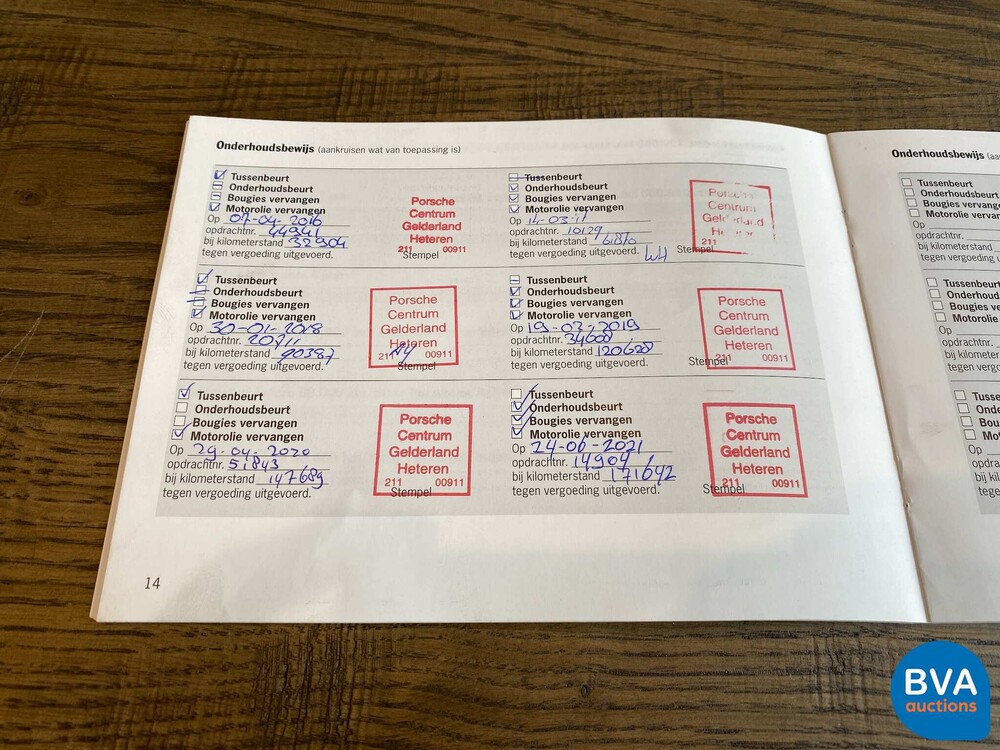 Onderhoudsbewijs (aankruisen wat van toepassing is)
Tussenbeurt
Onderhoudsbeurt
Bougies vervangen
Motorolie vervangen
Op 07-04-2016
opdrachtnr. 44941
bij kilometerstand 32904
tegen vergoeding uitgevoerd.
Porsche
Centrum
Gelderland
Heteren
211 00911
Stempel
Tussenbeurt
Onderhoudsbeurt
Bougies vervangen
Motorolie vervangen
Op 14-03-17
opdrachtnr. 10129
bij kilometerstand 61870
tegen vergoeding uitgevoerd.
Centrum
211
Stempel
Tussenbeurt
Onderhoudsbeurt
Bougies vervangen
Motorolie vervangen
Op 30-01-2018
opdrachtnr. 20711
bij kilometerstand 90387
tegen vergoeding uitgevoerd.
Porsche
Centrum
Gelderland
Heteren
211 00911
Stempel
Tussenbeurt
Onderhoudsbeurt
Bougies vervangen
Motorolie vervangen
Op 19-03-2019
opdrachtnr. 34608
bij kilometerstand 120628
tegen vergoeding uitgevoerd.
Porsche
Centrum
Gelderland
Heteren
211 00911
Stempel
Tussenbeurt
Onderhoudsbeurt
Bougies vervangen
Motorolie vervangen
Op 29-04-2020
opdrachtnr. 51843
bij kilometerstand 147689
tegen vergoeding uitgevoerd.
Porsche
Centrum
Gelderland
Heteren
211 00911
Stempel
Tussenbeurt
Onderhoudsbeurt
Bougies vervangen
Motorolie vervangen
Op 24-06-2021
opdrachtnr. 14904
bij kilometerstand 171642
tegen vergoeding uitgevoerd.
Porsche
Centrum
Gelderland
Heteren
211 00911
Stempel
14
Onderhoudsbewijs (aa
Tussenbeurt
Onderhoudsbeurt
Bougies vervang
Motorolie vervang
Op
opdrachtnr.
bij kilometerstand
tegen vergoeding u
Tussenbeurt
Onderhoudsb
Bougies verv
Motorolie ver
Op
opdrachtnr.
bij kilometersta
tegen vergoedi
Tusse
Onder
Boug
Moto
Op
opdrac
bij kil
tegen
BVA
auctions